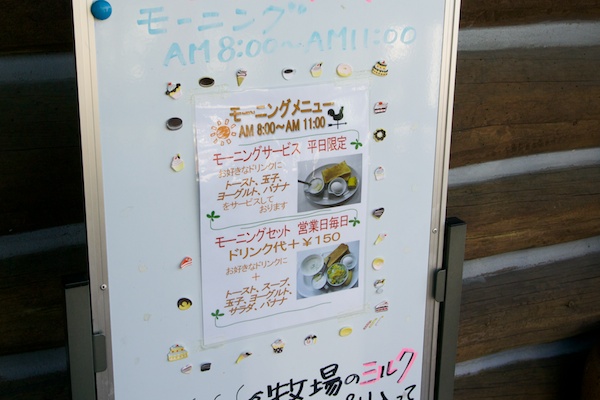 モーニング
AM 8:00～AM11:00
モーニングメニュー
AM 8:00～AM 11:00
モーニングサービス 平日限定
お好きなドリンクに
トースト、玉子、
ヨーグルト、バナナ
をサービスして
おります
モーニングセット 営業日毎日
ドリンク代＋￥150
お好きなドリンクに
＋
トースト、スープ、
玉子、ヨーグルト、
サラダ、バナナ
牧場のミルク